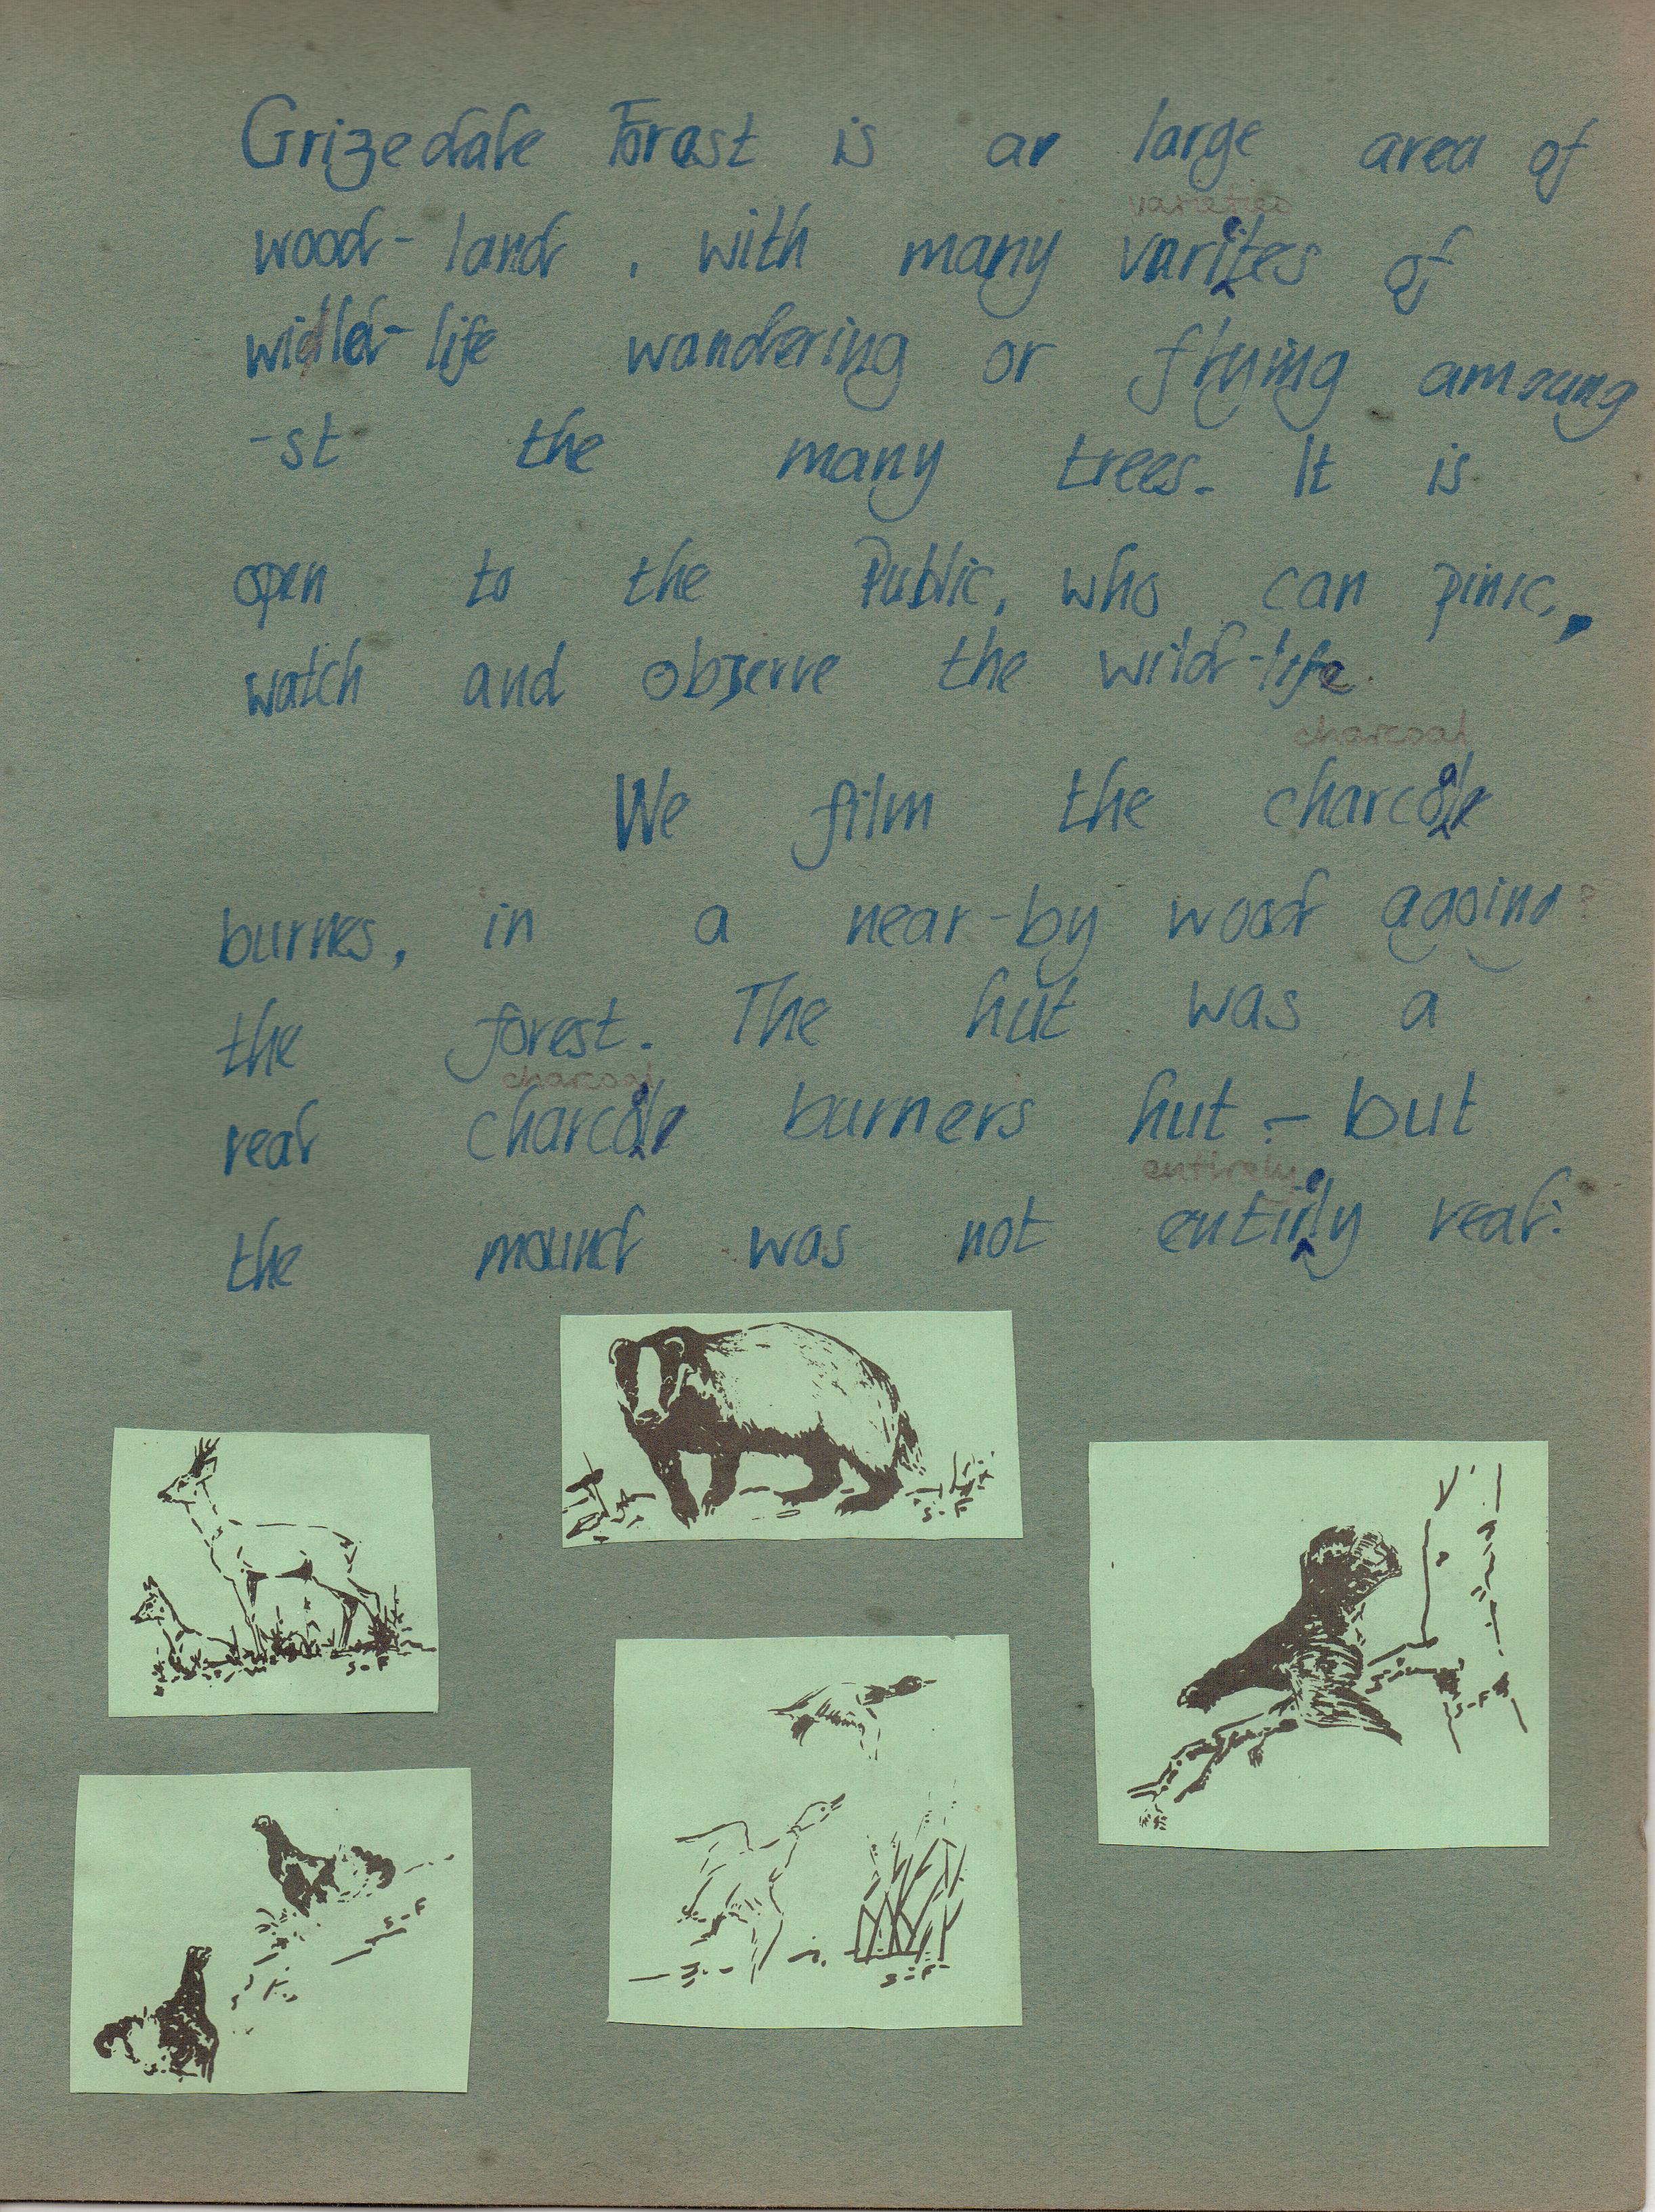 Grizedale Forest is a large area of
varieties
wood-land, with many varietes of
wildd-life wandering or flying amoung
-st the many trees. It is
open to the Public, who can pinic,
watch and observe the wild-life.
charcoal
We film the charcoal
burnes, in a near-by wood agoind ?
the forest. The hut was a
charcoal
real charcoal burners hut - but
entirely
the mound was not entirely real.
S-F
S-F
S-F
S-F
S-F